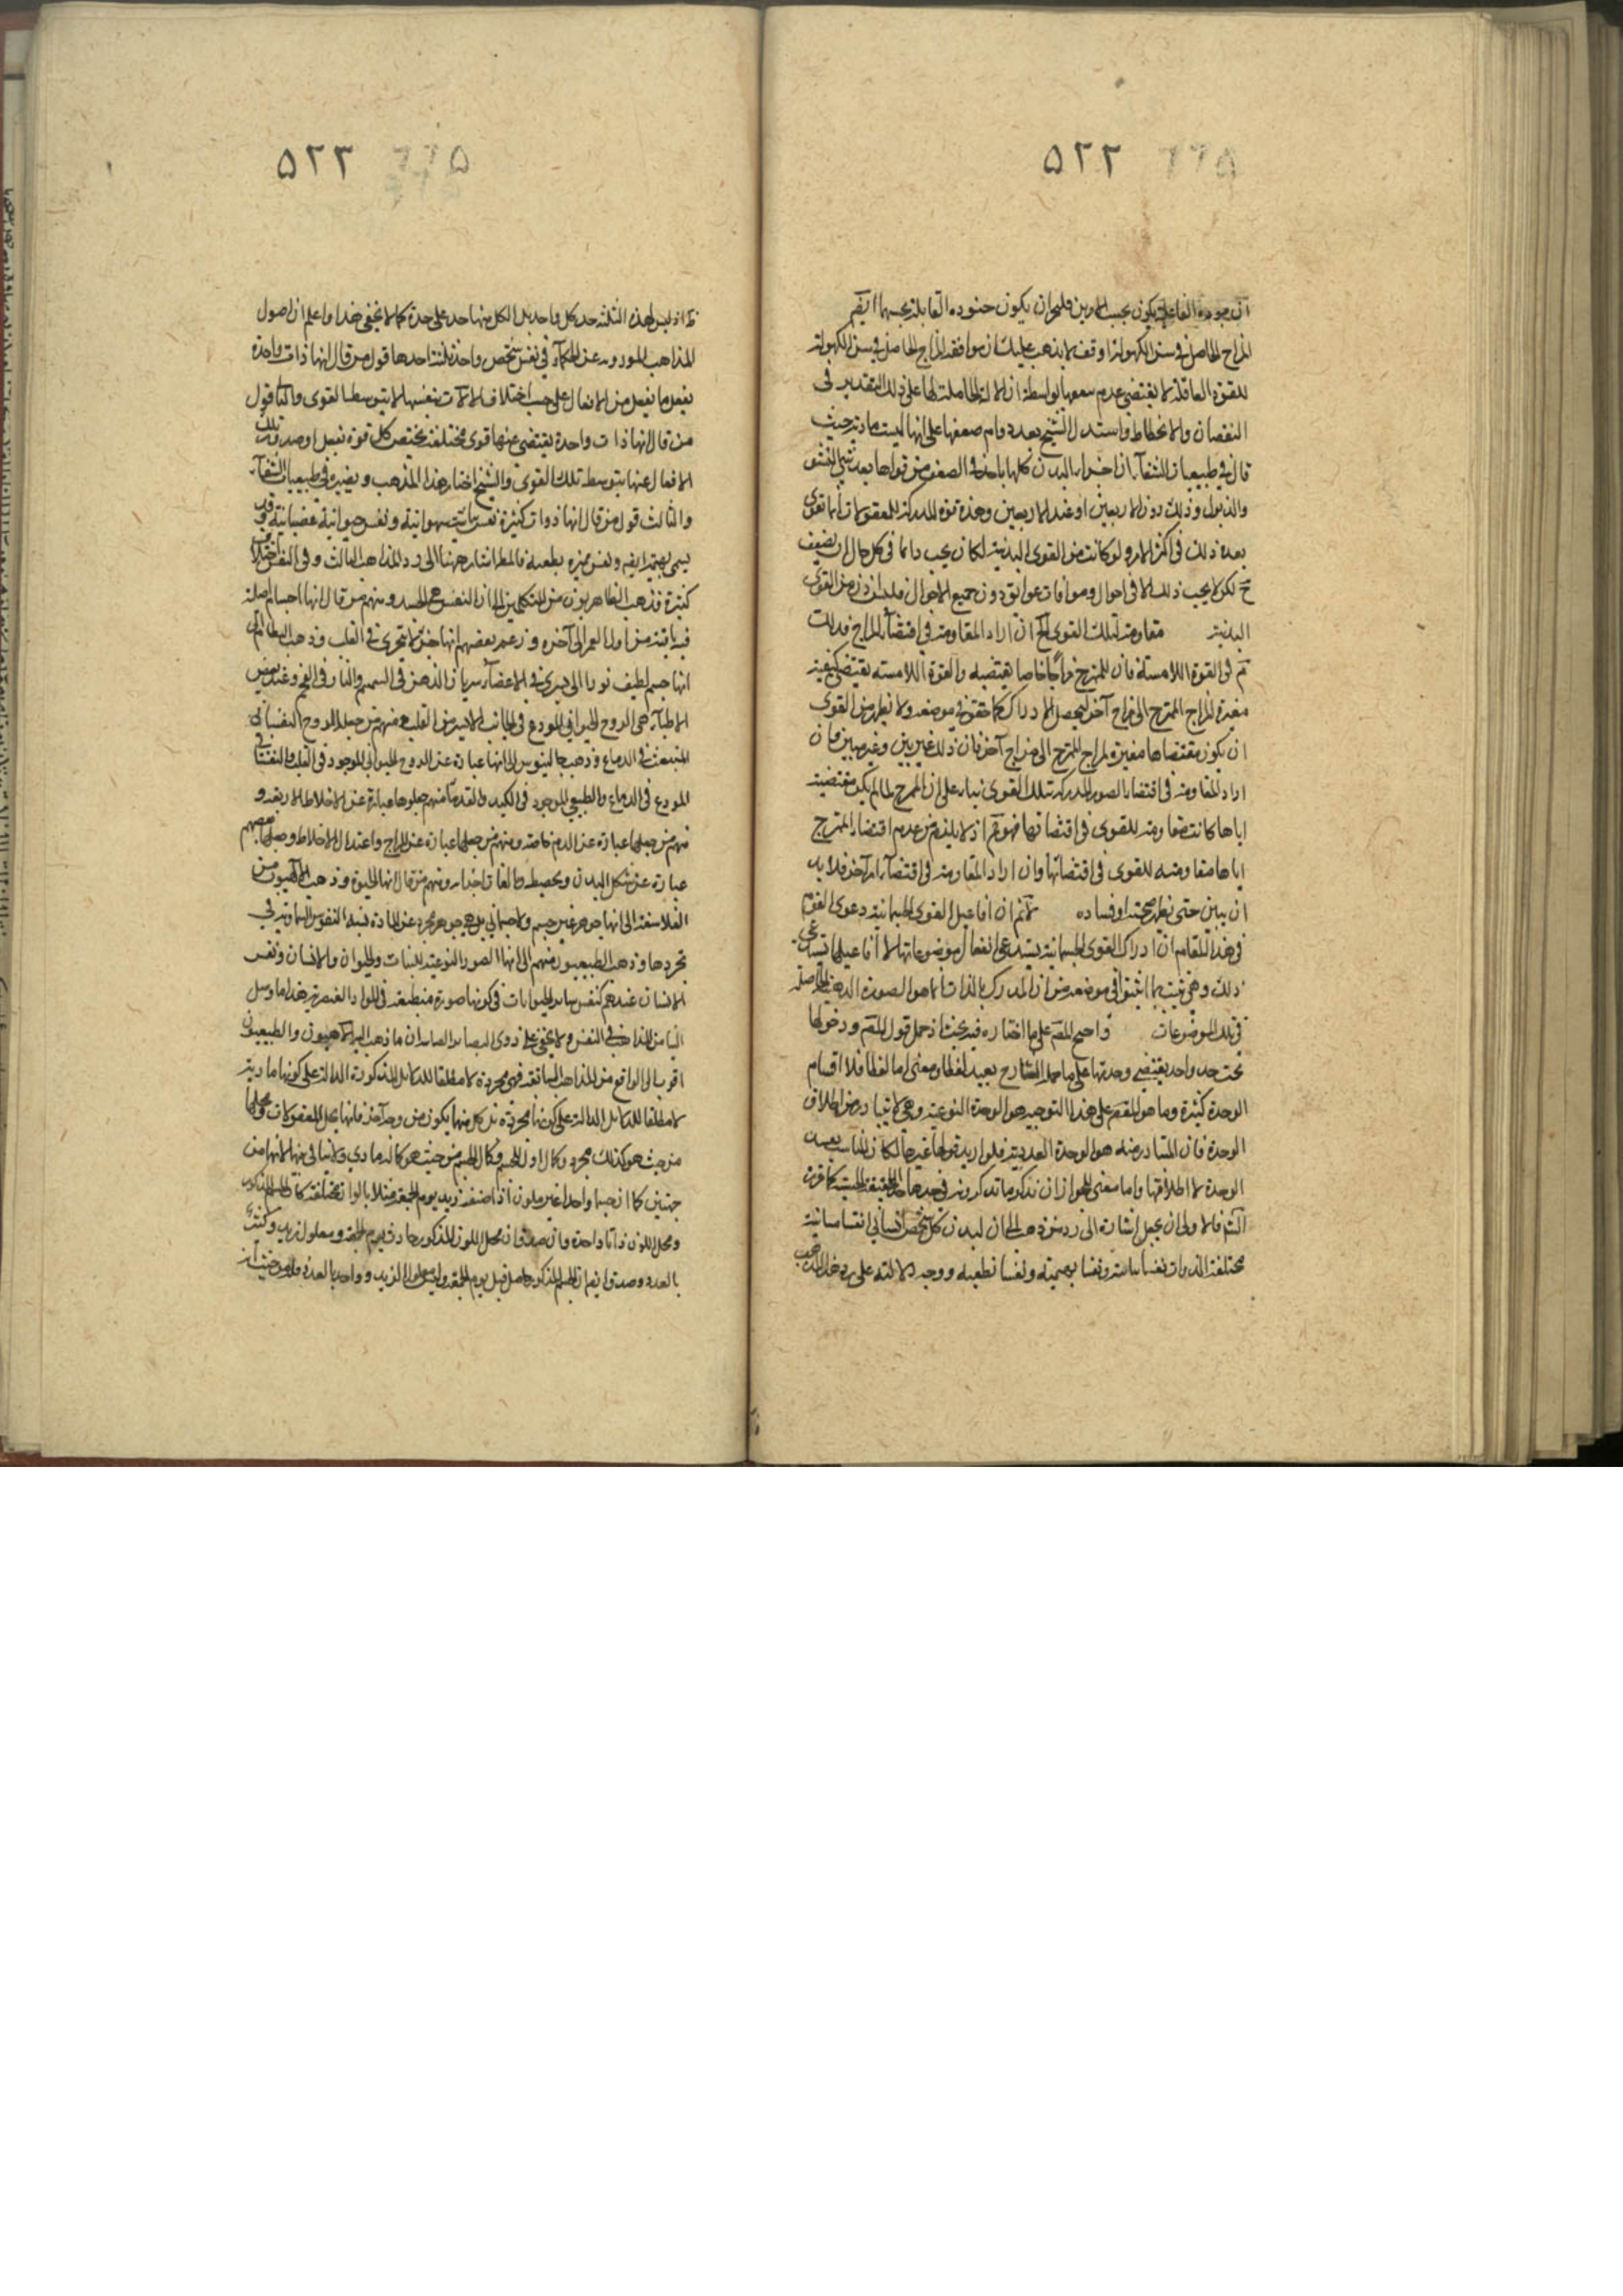 ٥٢٢
المزاج الحاصل فى سن الكهولة او قف لا يذهب عليك ان موافقة المزاج الحاصل فى سن الكهولة
للقوة العاقلة لا يقتضى عدم ضعفها بواسطة ان الآلة الحاملة لها على ذلك التقدير فى
النقصان والانحطاط واستدل الشيخ بعدم دوام ضعفها على انها ليست مادية حيث
قال فى طبيعيات الشفاء ان اجزاء البدن كلها ياخذ فى الضعف من قواها بعد منتهى النشو
والذبول وذلك دون الاربعين او عند الاربعين وهذه قوة المدركة للمعقولات انما تقوى
بعد ذلك فى اكثر الامر ولو كانت من القوى البدنية لكان يجب دائما فى كل حال ان يضعف
ح لكن لا يجب ذلك الا فى احوال وموافات عوايق دون جميع الاحوال فليست اذن من القوى
البدنية مقاومة لتلك القوى الخ ان اراد المقاومة فى اقتضاء المزاج فذلك
تم فى القوة اللامسة فان للممتزج مزاجا خاصا يقتضيه والقوة اللامسة يقتضى كيفية
مغيرة لمزاج الممتزج الى مزاج آخر ليحصل الادراك كما حقق فى موضعه ولا نعلم من القوى
ان يكون مقتضاها مغيرة لمزاج الممتزج الى مزاج آخر فان ذلك غير بين وغير مبين فان
اراد المقاومة فى اقتضاء الصور المدركة لتلك القوى بناء على ان الممتزج لما لم يكن مقتضية
اياها كانت مقاومة للقوى فى اقتضائها فهو تم اذ لا يلزم من عدم اقتضاء الممتزج
اياها مقاومته للقوى فى اقتضائها وان اراد المقاومة فى اقتضاء امر آخر فلا بد
ان يبين حتى نعلم صحته او فساده لا تم ان افاعيل القوى الجسمانية دعوى القوم
فى هذا المقام ان ادراك القوى الجسمانية يستدعى انفعال موضوعاتها لا ان افاعيلها تستدعى
ذلك وهى تثبت بما اثبتوا فى موضعه من ان المدرك بالذات انما هو الصورة الذهنية الحاصلة
فى تلك الموضوعات واحتج المصنف على ما اختاره فيه بحث اذ حمل قول المصنف ودخولها
تحت حد واحد يقتضى وحدتها على ما حمله الشارح بعيد لفظا ومعنى اما لفظا فلا اقسام
الوحدة كثيرة وما هو المقصود على هذا التوجيه هو الوحدة النوعية وهى لا يتبادر من اطلاق
الوحدة فان المتبادر منه هو الوحدة العددية فلو اريد بقولها غيرها لكان المناسب تقييد
الوحدة لا اطلاقها واما معنى فلجواز ان
فالاولى ان يجعل اشارة الى رد من ذهب الى ان لبدن كل شخص انسانى
مختلفة الذوات نفسا نباتية ونفسا بهيمية ونفسا نطقية ووجه دلالته على رد هذا المذهب
٥٢٣
اذ ليس لهذه الثلثة حد بكل واحد بل لكل منها حد على حدة كما لا يخفى هذا واعلم ان اصول
المذاهب الموروده عن الحكماء فى نفس شخص واحد ثلثة احدها قول من قال انها ذات واحدة
يفعل ما يفعل من الافعال على حسب اختلاف الآلات بنفسها لا بتوسط القوى والثانى قول
من قال انها ذات واحدة يقتضى عنها قوى مختلفة يختص كل قوة بفعل او صدور تلك
الافعال عنها بتوسط تلك القوى والشيخ اختار هذا المذهب ونصره فى طبيعيات الشفاء
والثالث قول من قال انها ذوات كثيرة نفس نباتية شهوانية ونفس حيوانية غضبانية وقد
يسمى بهيمة ايضا ونفس مميزه نطقية فالمصنف اشار ههنا الى رد المذاهب الثالث وفى النفس اختلاف
كثيرة فذهب الظاهريون من المتكلمين الى ان النفس هى الجسد ومنهم من قال انها اجسام اصلية
فيه باقية من اول العمر الى آخره وزعم بعضهم انها جزء لا يتجزى فى القلب وذهب النظام الى
انها جسم لطيف نورانى يسرى فى الاعضاء سريان الدهن فى السمسم والنار فى الفحم وعند بعض
الاطباء هى الروح الحيوانى المودع فى الجانب الايسر من القلب ومنهم من جعلها الروح النفسانى
المنبعث فى الدماغ وذهب جالينوس الى انها عبارة عن الروح الحيوانى الموجود فى القلب والنفسانى
المودع فى الدماغ والطبيعى الموجود فى الكبد والقدماء منهم جعلوها عبارة عن الاخلاط الاربعة و
منهم من جعلها عبارة عن الدم خاصة ومنهم من جعلها عبارة عن المزاج واعتدال الاخلاط وجعلها بعضهم
عبارة عن شكل البدن وتخطيطه ومنهم من قال انها الحيوة وذهب الآلهيون من
الفلاسفة الى انها جوهر غير جسم ولا جسمانى بل هى جوهر مجرد عن المادة نسبة النفوس السماوية فى
تجردها وذهب الطبيعيون منهم الى انها الصور النوعية للنبات والحيوان والانسان ونفس
الانسان عندهم كنفس ساير الحيوانات فى كونها صورة منطبعة فى المواد العنصرية هذا ما وصل
الينا من المذاهب فى النفس ولا يخفى على ذوى البصاير الصايبة ان ما ذهب اليه الآلهيون والطبيعيون
اقرب الى الواقع من المذاهب السابقة فهى مجردة لا مطلقا للدلايل المذكورة الدالة على كونها مادية
لا مطلقا للدلايل الدالة على كونها مجردة بل كل منها يكون من وجه آخر فانها محل للمعقولات ومحلها
من حيث هو كذلك مجرد وكمال اول للجسم وكمال الجسم من حيث هو كماله مادى ولا تنافى بينهما لانهما من
جهتين كما ان جسما واحدا غير ملون اذا اضفه زيد يوم الجمعة مثلا بالوان مختلفة كان الجسم المذكور
ومحل اللون ذاتا واحدة وان صدق ان محل اللون المذكور حادث يوم الجمعة ومعلول لزيد وكثير
بالعدد وصدق ايضا ان الجسم المذكور حاصل قبل يوم الجمعة وليس معلولا لزيد وواحد بالعدد